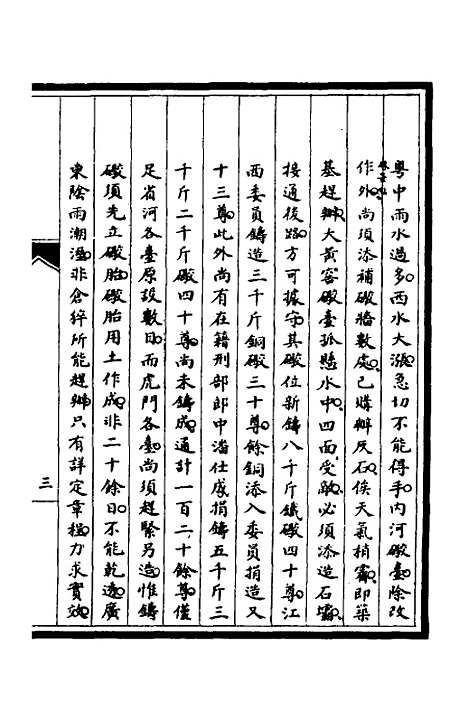 粵中雨水過多西水大漲急切不能得手內河礮臺除改
作外尚須添補礮牆數處已購辦灰石俟天氣稍霽即築
基趕辦大黃窖礮臺孤懸水中四面受敵必須添造石壩
接通後路方可據守其礮位新鑄八千斤鐵礮四十尊江
西委員鑄造三千斤銅礮三十尊餘銅添入委員捐造又
十三尊此外尚有在藉刑部郎中潘仕成捐鑄五千斤三
千斤二千斤礮四十尊尚未鑄成通計一百二十餘尊僅
足省河各臺原設數目而虎門各臺尚須趕緊另造惟鑄
礮須先立礮胎礮胎用土作成非二十餘日不能乾透廣
東陰雨潮濕非倉猝所能趕辦只有詳定章程力求實效
三